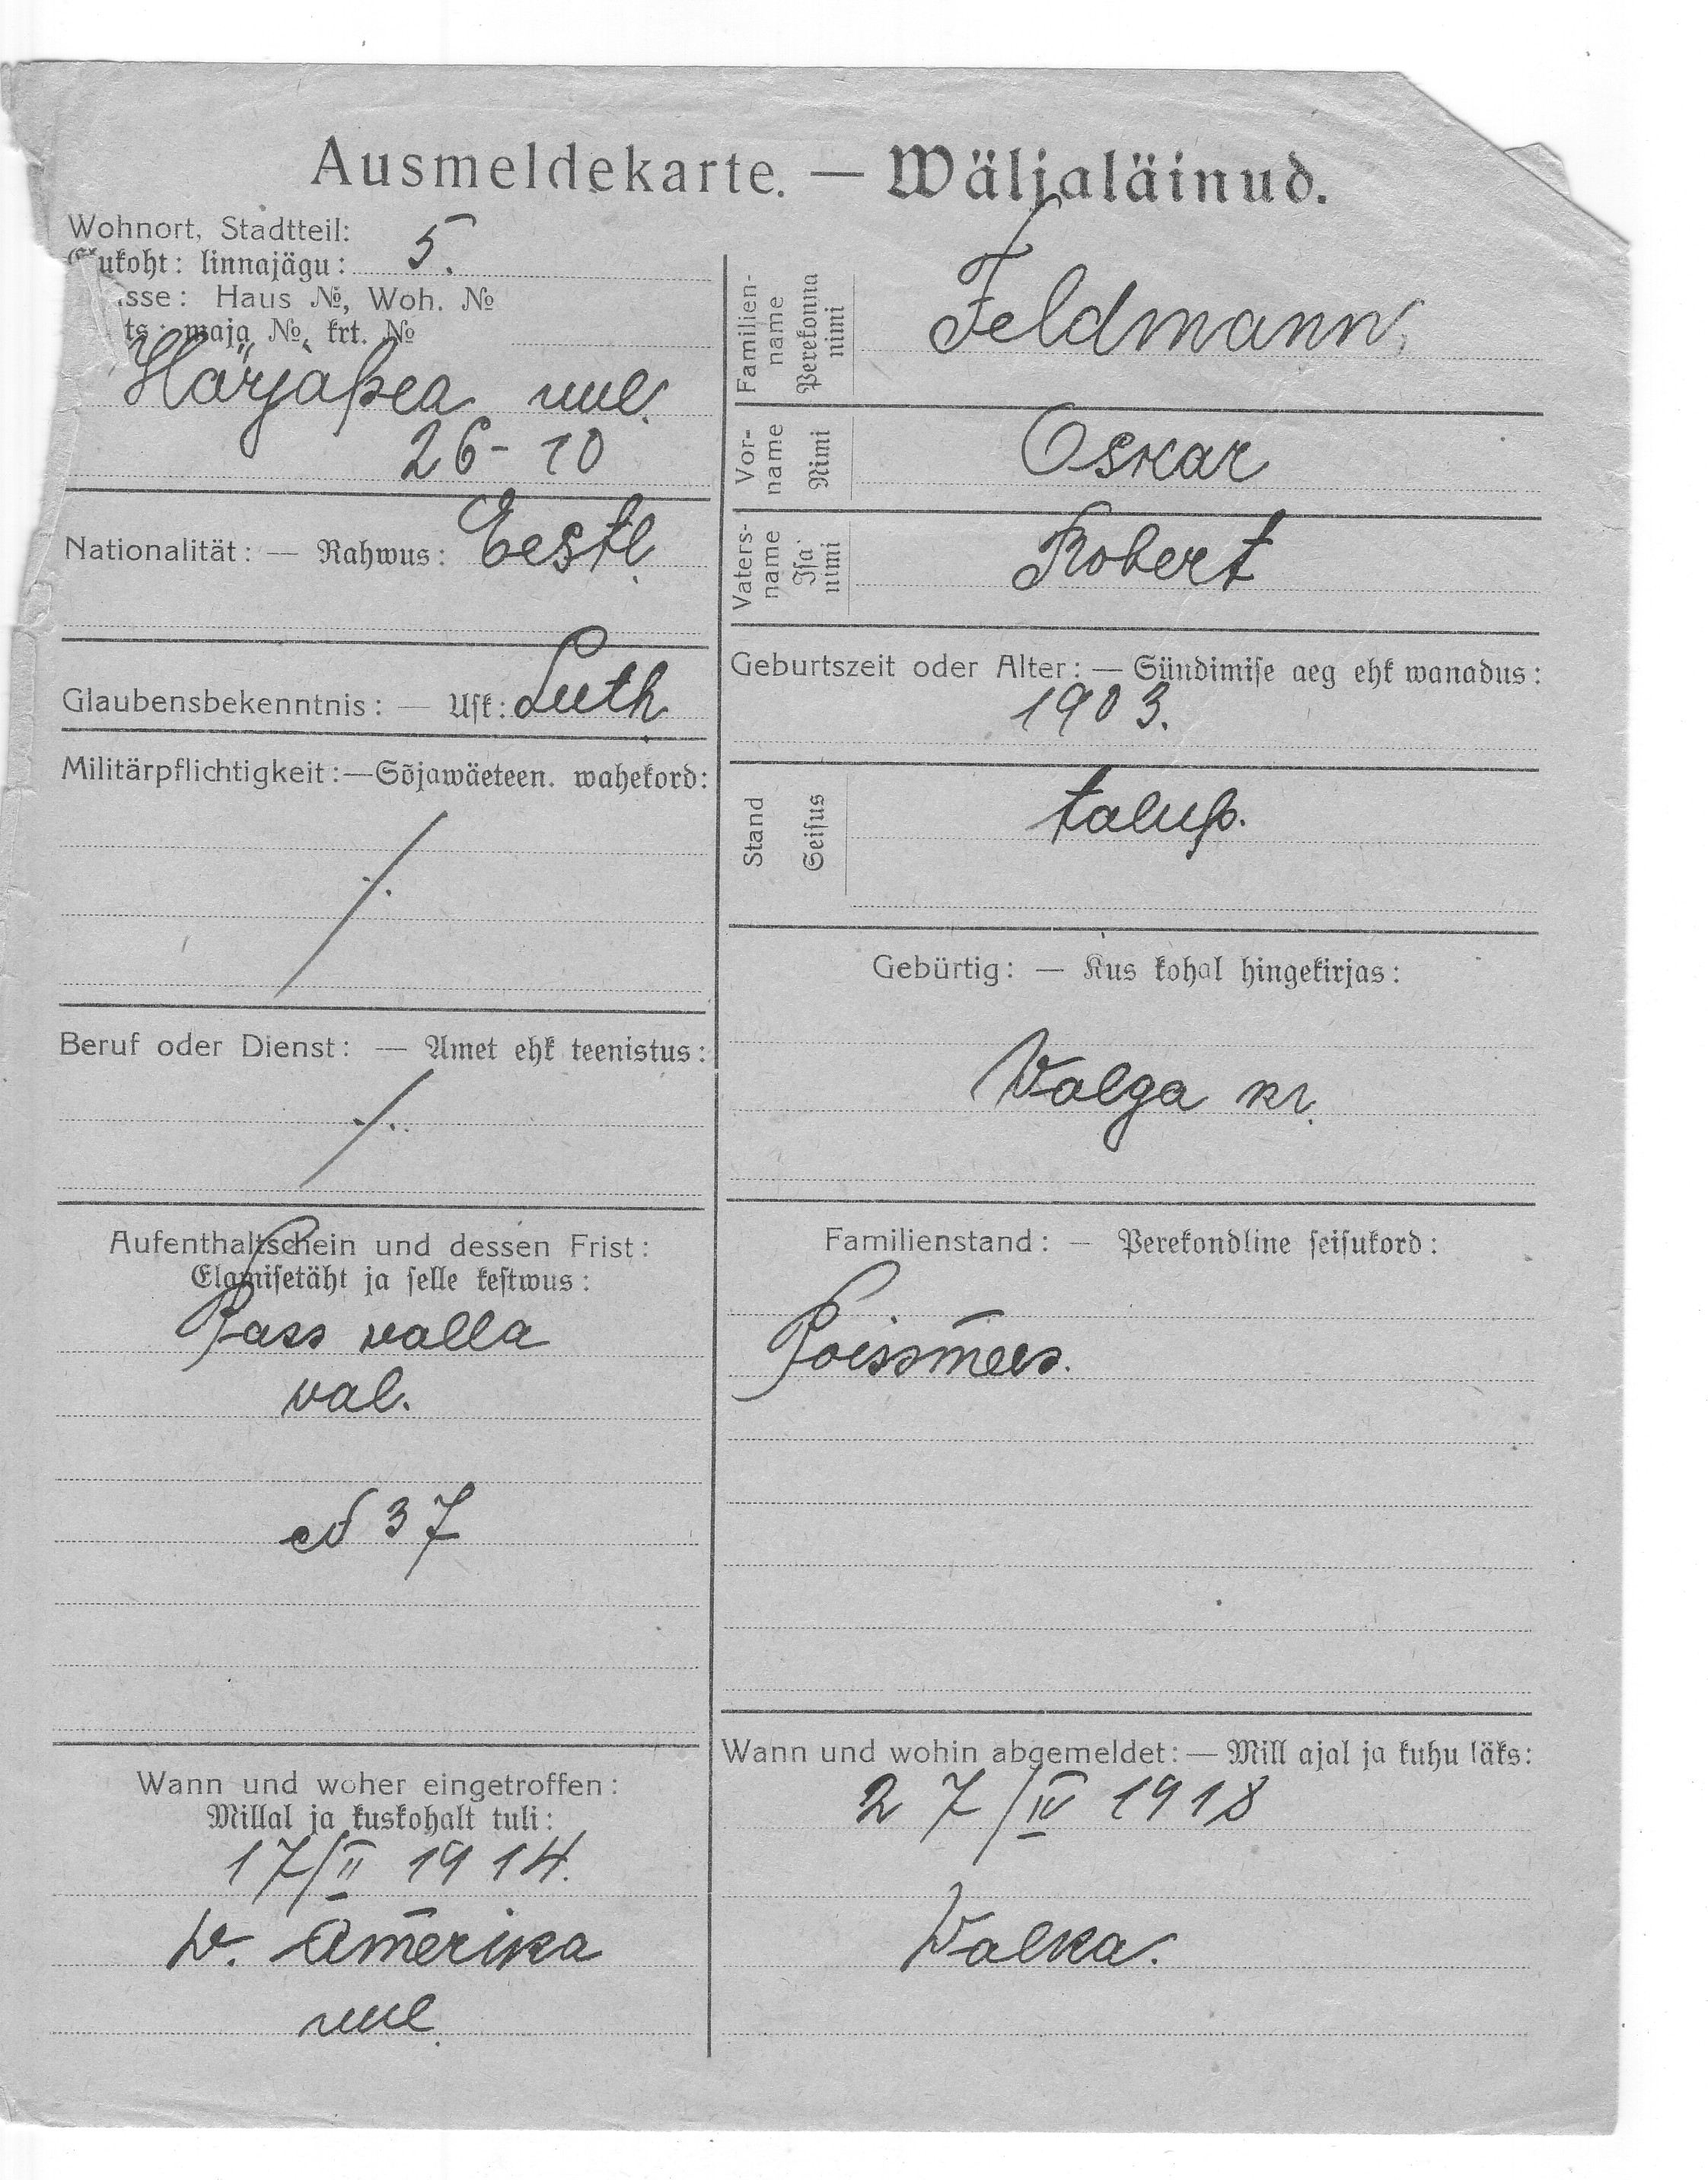 Ausmeldekarte. — Wäljaläinud.
Wohnort, Stadtteil:
ukoht: linnajägu: 5.
sse: Haus №, Woh. №
ts: maja №, krt. №
Härjapea uul.
26-10
Nationalität: — Rahwus: Eestl.
Glaubensbekenntnis: — Usk: Luth
Militärpflichtigkeit: — Sõjawäeteen. wahekord:
Beruf oder Dienst: — Amet ehk teenistus:
Aufenthaltschein und dessen Frist:
Elamisetäht ja selle kestwus:
Pass valla
val.
№ 37
Wann und woher eingetroffen:
Millal ja kuskohalt tuli:
17/II 1914.
W. Amerika
uul.
Familien-
name
Perekonna
nimi
Feldmann,
Vor-
name
Nimi
Oskar
Vaters-
name
Isa
nimi
Robert
Geburtszeit oder Alter: — Sündimise aeg ehk wanadus:
1903.
Stand
Seisus
talup.
Gebürtig: — Kus kohal hingekirjas:
Walga kr.
Familienstand: — Perekondline seisukord:
Poissmees.
Wann und wohin abgemeldet: — Mill ajal ja kuhu läks:
27/IV 1918
Walka.